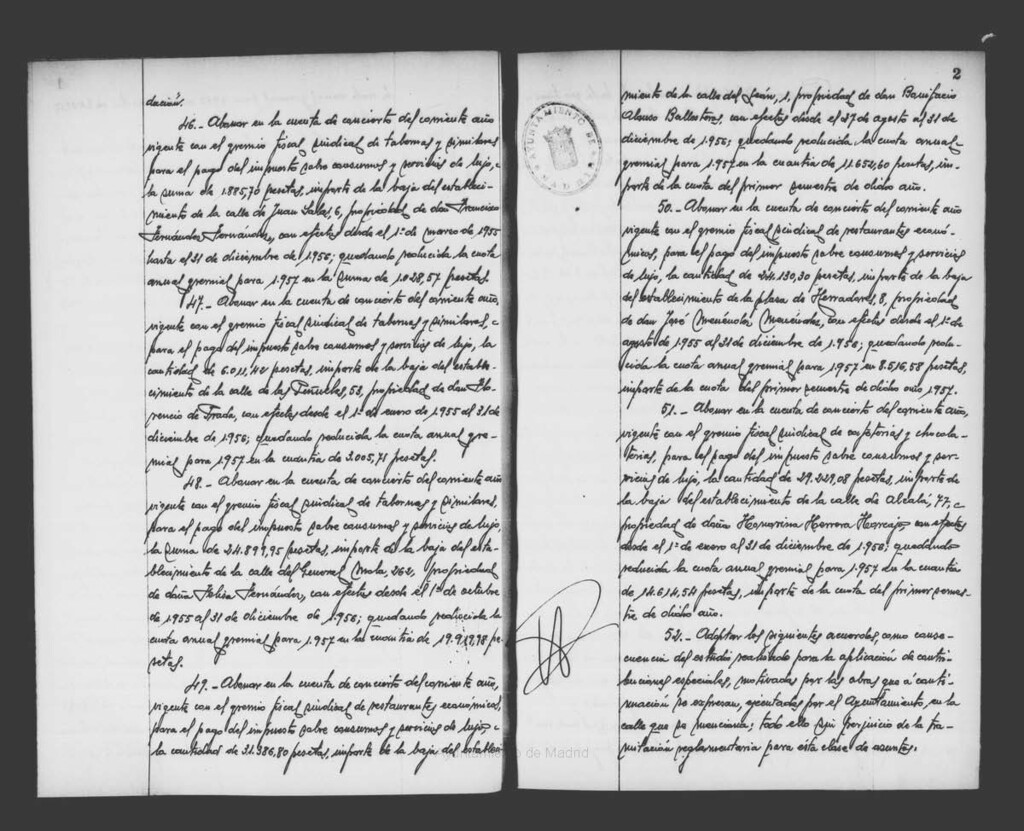 dación.
46.- Abonar en la cuenta de concierto del corriente año
vigente con el gremio fiscal sindical de tabernas y similares
para el pago del impuesto sobre consumos y servicios de lujo,
la suma de 1.885,70 pesetas, importe de la baja del estableci-
miento de la calle de Juan Salas, 6, propiedad de don Francisco
Fernández Fernández, con efectos desde el 1º de marzo de 1955
hasta el 31 de diciembre de 1956; quedando reducida la cuota
anual gremial para 1957 en la suma de 1.028,57 pesetas.
47.- Abonar en la cuenta de concierto del corriente año,
vigente con el gremio fiscal sindical de tabernas y similares,
para el pago del impuesto sobre consumos y servicios de lujo, la
cantidad de 6.011,42 pesetas, importe de la baja del estable-
cimiento de la calle de las Peñuelas, 53, propiedad de don Flo-
rencio de Prada, con efectos desde el 1º de enero de 1955 al 31 de
diciembre de 1956; quedando reducida la cuota anual gre-
mial para 1957 en la cuantía de 3.005,71 pesetas.
48.- Abonar en la cuenta de concierto del corriente año
vigente con el gremio fiscal sindical de tabernas y similares,
para el pago del impuesto sobre consumos y servicios de lujo,
la suma de 24.899,95 pesetas, importe de la baja del esta-
blecimiento de la calle del General Mola, 262, propiedad
de doña Felisa Fernández, con efectos desde el 1º de octubre
de 1955 al 31 de diciembre de 1956; quedando reducida la
cuota anual gremial para 1957 en la cuantía de pe-
setas.
49.- Abonar en la cuenta de concierto del corriente año,
vigente con el gremio fiscal sindical de restaurantes económicos,
para el pago del impuesto sobre consumos y servicios de lujo,
la cantidad de 31.386,80 pesetas, importe de la baja del estableci-
2
AYUNTAMIENTO DE MADRID
miento de la calle del León, 1, propiedad de don Bonifacio
Alonso Ballesteros, con efectos desde el 27 de agosto al 31 de
diciembre de 1.956; quedando reducida la cuota anual
gremial para 1.957 en la cuantía de 11.652,60 pesetas, im-
porte de la cuota del primer semestre de dicho año.
50.- Abonar en la cuenta de concierto del corriente año
vigente con el gremio fiscal sindical de restaurantes econó-
micos, para el pago del impuesto sobre consumos y servicios
de lujo, la cantidad de 24.130,30 pesetas, importe de la baja
del establecimiento de la plaza de Herradores, 8, propiedad
de don José Menéndez Menéndez, con efectos desde el 1º de
agosto de 1955 al 31 de diciembre de 1.956; quedando redu-
cida la cuota anual gremial para 1957 en 8.516,58 pesetas,
importe de la cuota del primer semestre de dicho año 1957.
51.- Abonar en la cuenta de concierto del corriente año,
vigente con el gremio fiscal sindical de confiterías y chocola-
terías, para el pago del impuesto sobre consumos y ser-
vicios de lujo, la cantidad de 29.229,08 pesetas, importe de
la baja del establecimiento de la calle de Alcalá, 77,
propiedad de doña Honorina Herrera con efectos
desde el 1º de enero al 31 de diciembre de 1.956; quedando
reducida la cuota anual gremial para 1.957 en la cuantía
de 14.614,54 pesetas, importe de la cuota del primer semes-
tre de dicho año.
52.- Adoptar los siguientes acuerdos, como conse-
cuencia del estudio realizado para la aplicación de contri-
buciones especiales, motivadas por las obras que a conti-
nuación se expresan, ejecutadas por el Ayuntamiento, en la
calle que se menciona; todo ello sin perjuicio de la tra-
mitación reglamentaria para esta clase de asuntos.
Ayuntamiento de Madrid